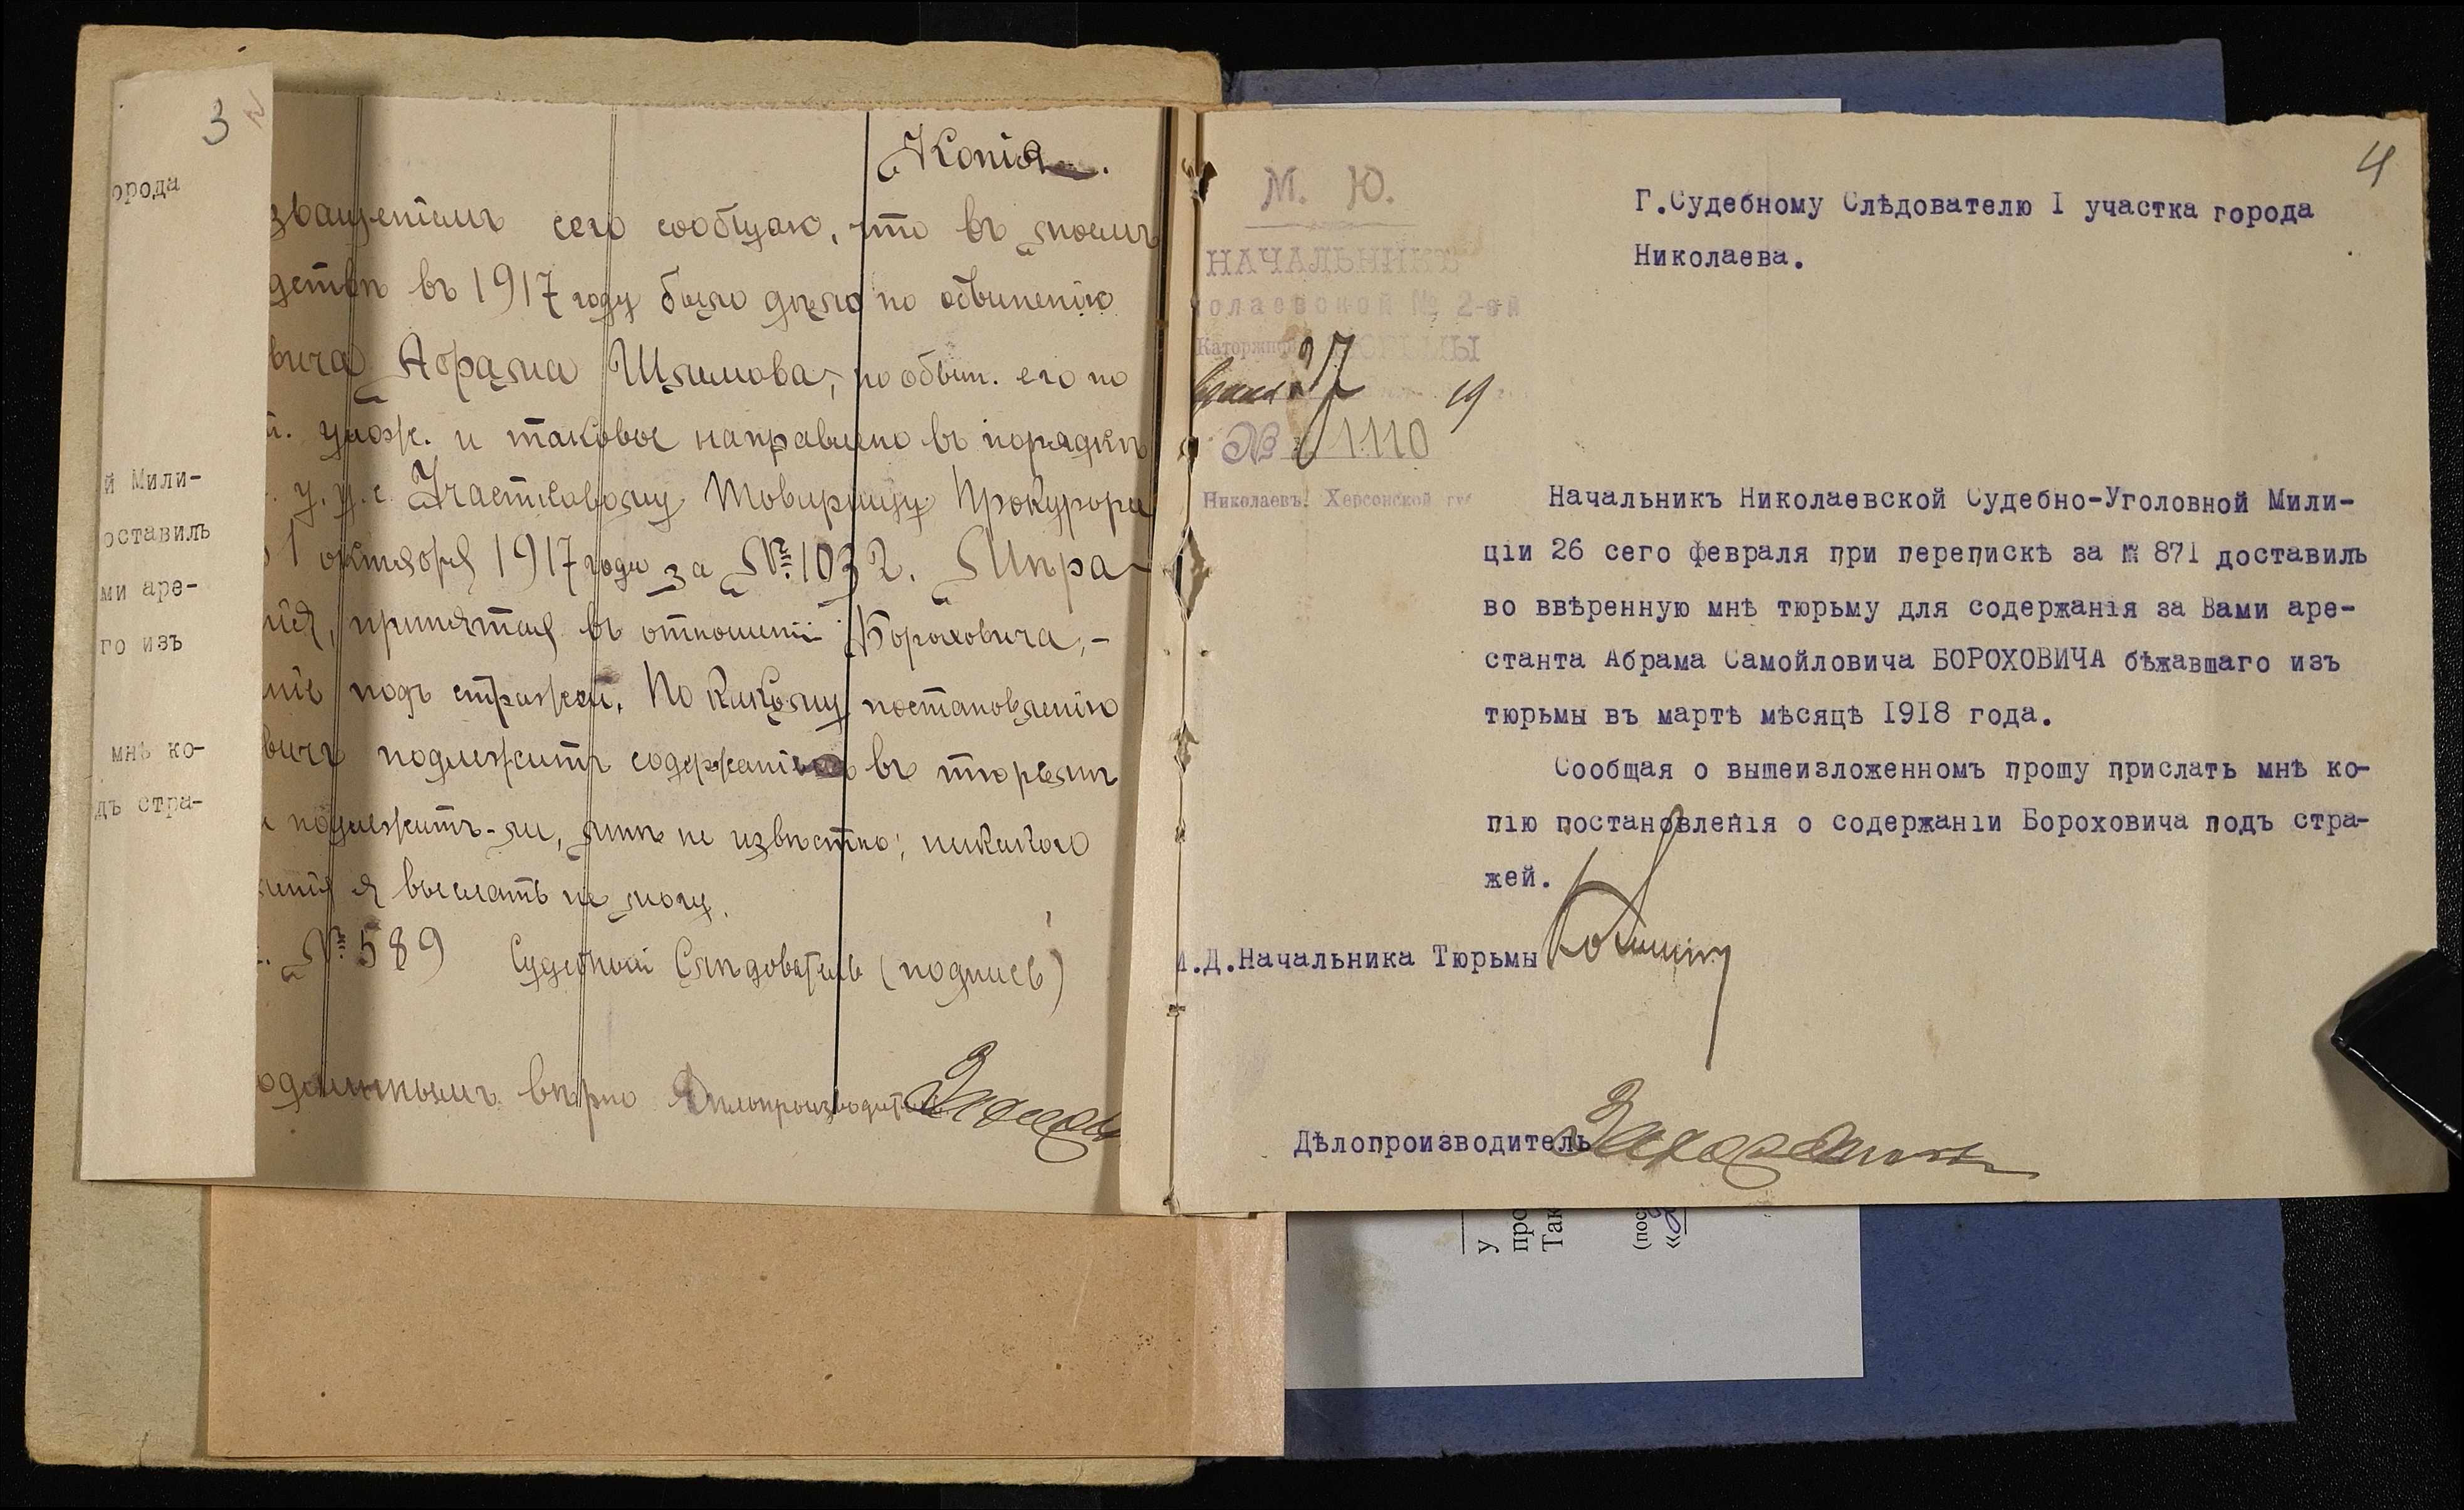 3
орода
й Мили-
оставилъ
ми аре-
го изъ
мнѣ ко-
дъ стра-
Копія.
звращеніемъ сего сообщаю, что въ моемъ
дствѣ въ 1917 году было дѣло по обвиненію
вича Абрама Шлимова, по обвин. его по
улож. и таковое направлено въ порядкѣ
у. у. с. Участковому Товарищу Прокурора
1 октября 1917 года за № 1032. Мѣра
нія, принятая въ отношеніи Бороховича,-
ніе подъ стражей. По какому постановленію
вичъ подлежитъ содержанію въ тюрьмѣ
и подлежитъ-ли, мнѣ не извѣстно; никакого
я выслать не могу.
№ 589 Судебный Слѣдователь (подпись)
одлиннымъ вѣрно Дѣлопроизводитель
4
М. Ю.
НАЧАЛЬНИКЪ
олаевской № 2-ой
Каторжной ТЮРЬМЫ
27
19
№ 1110
Николаевъ, Херсонской гу
Г.Судебному Слѣдователю I участка города
Николаева.
Начальникъ Николаевской Судебно-Уголовной Мили-
ціи 26 сего февраля при перепискѣ за № 871 доставилъ
во ввѣренную мнѣ тюрьму для содержанія за Вами аре-
станта Абрама Самойловича БОРОХОВИЧА бѣжавшаго изъ
тюрьмы въ мартѣ мѣсяцѣ 1918 года.
Сообщая о вышеизложенномъ прошу прислать мнѣ ко-
пію постановленія о содержаніи Бороховича подъ стра-
жей.
И.Д.Начальника Тюрьмы
Дѣлопроизводитель
У
про
Так
(пос
«